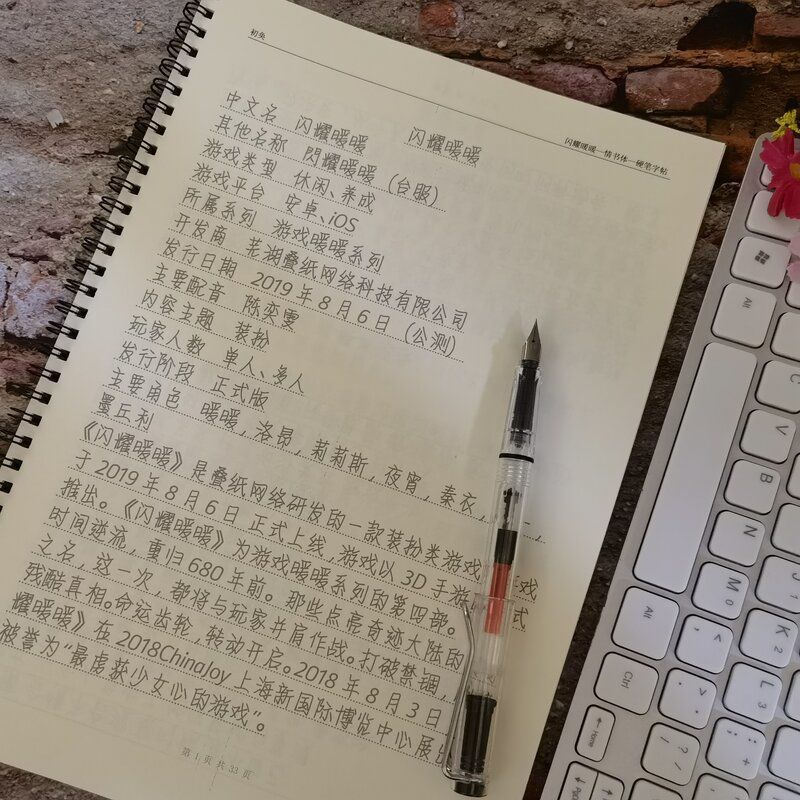 初奂
闪耀暖暖—情书体—硬笔字帖
中文名 闪耀暖暖 闪耀暖暖
其他名称 閃耀暖暖（台服）
游戏类型 休闲、养成
游戏平台 安卓、iOS
所属系列 游戏暖暖系列
开发商 芜湖叠纸网络科技有限公司
发行日期 2019年8月6日（公测）
主要配音 陈奕雯
内容主题 装扮
玩家人数 单人、多人
发行阶段 正式版
主要角色 暖暖，洛昂，莉莉斯，夜宵，奏衣，
墨丘利
《闪耀暖暖》是叠纸网络研发的一款装扮类游戏
于2019年8月6日正式上线，游戏以3D手游 式
推出。《闪耀暖暖》为游戏暖暖系列的第四部。
时间逆流，重归680年前。那些点亮奇迹大陆的
之名，这一次，都将与玩家并肩作战。打破禁锢，
残酷真相。命运齿轮，转动开启。2018年8月3日
耀暖暖》在2018ChinaJoy上海新国际博览中心展出
被誉为“最虏获少女心的游戏”。
第1页共33页
Alt
C
V
B
N
M
J
K
L
Alt
Ctrl
Home
PgD